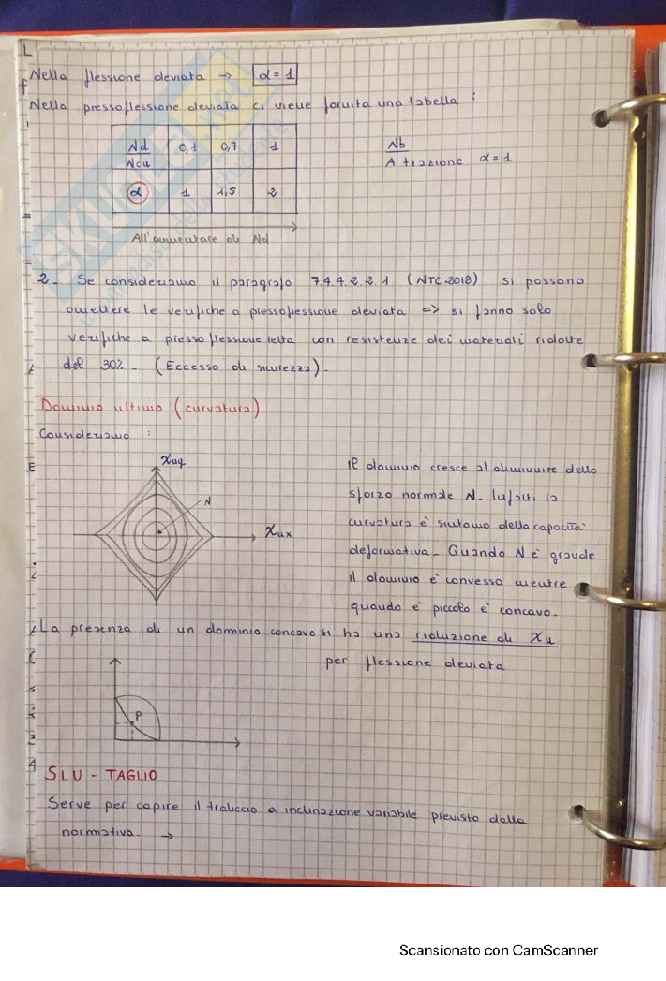 Nella flessione deviata → α = 1
Nella pressoflessione deviata ci viene fornita una tabella :
Nd/Ncu 0,1 0,7 1
α 1 1,5 2
Nb
A trazione α = 1
All'aumentare di Nd
2. Se consideriamo il paragrafo 7.4.4.2.2.1 (NTC-2018) si possono
omettere le verifiche a pressoflessione deviata => si fanno solo
verifiche a pressoflessione retta con resistenze dei materiali ridotte
del 30%. (Eccesso di sicurezza).
Dominio ultimo (curvatura)
Consideriamo :
χuy
N
χux
Il dominio cresce al diminuire dello
sforzo normale N. Infatti la
curvatura è sintomo della capacità
deformativa. Quando N è grande
il dominio è convesso mentre
quando è piccolo è concavo.
La presenza di un dominio concavo si ha una riduzione di χu
per flessione deviata
P
SLU - TAGLIO
Serve per capire il traliccio a inclinazione variabile previsto dalla
normativa. →
Scansionato con CamScanner